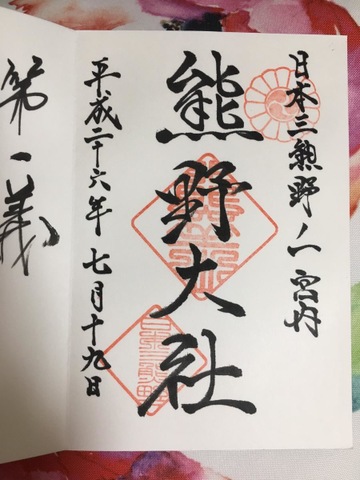 日本三熊野ノ一 宮内
熊野大社
平成二十六年 七月十九日
第一義